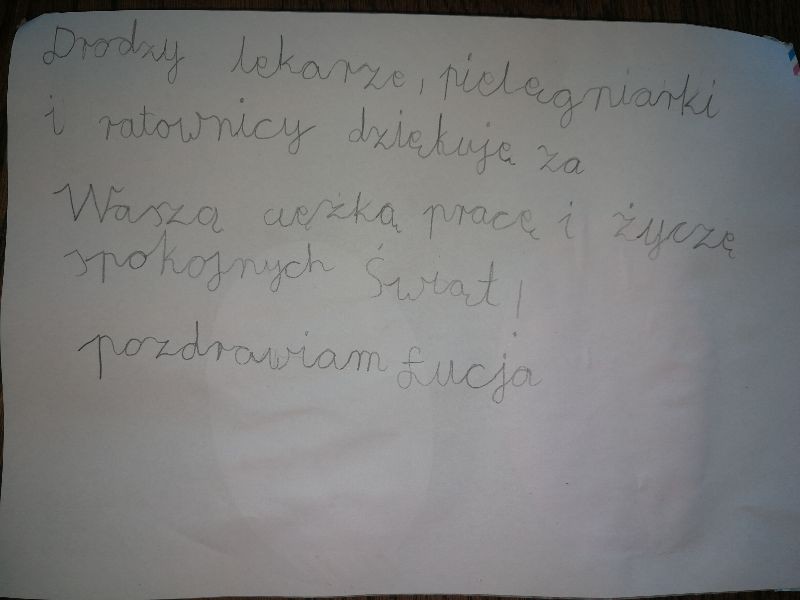 Drodzy lekarze, pielęgniarki
i ratownicy dziękuję za
Waszą ciężką pracę i życzę
spokojnych Świąt!
pozdrawiam Łucja